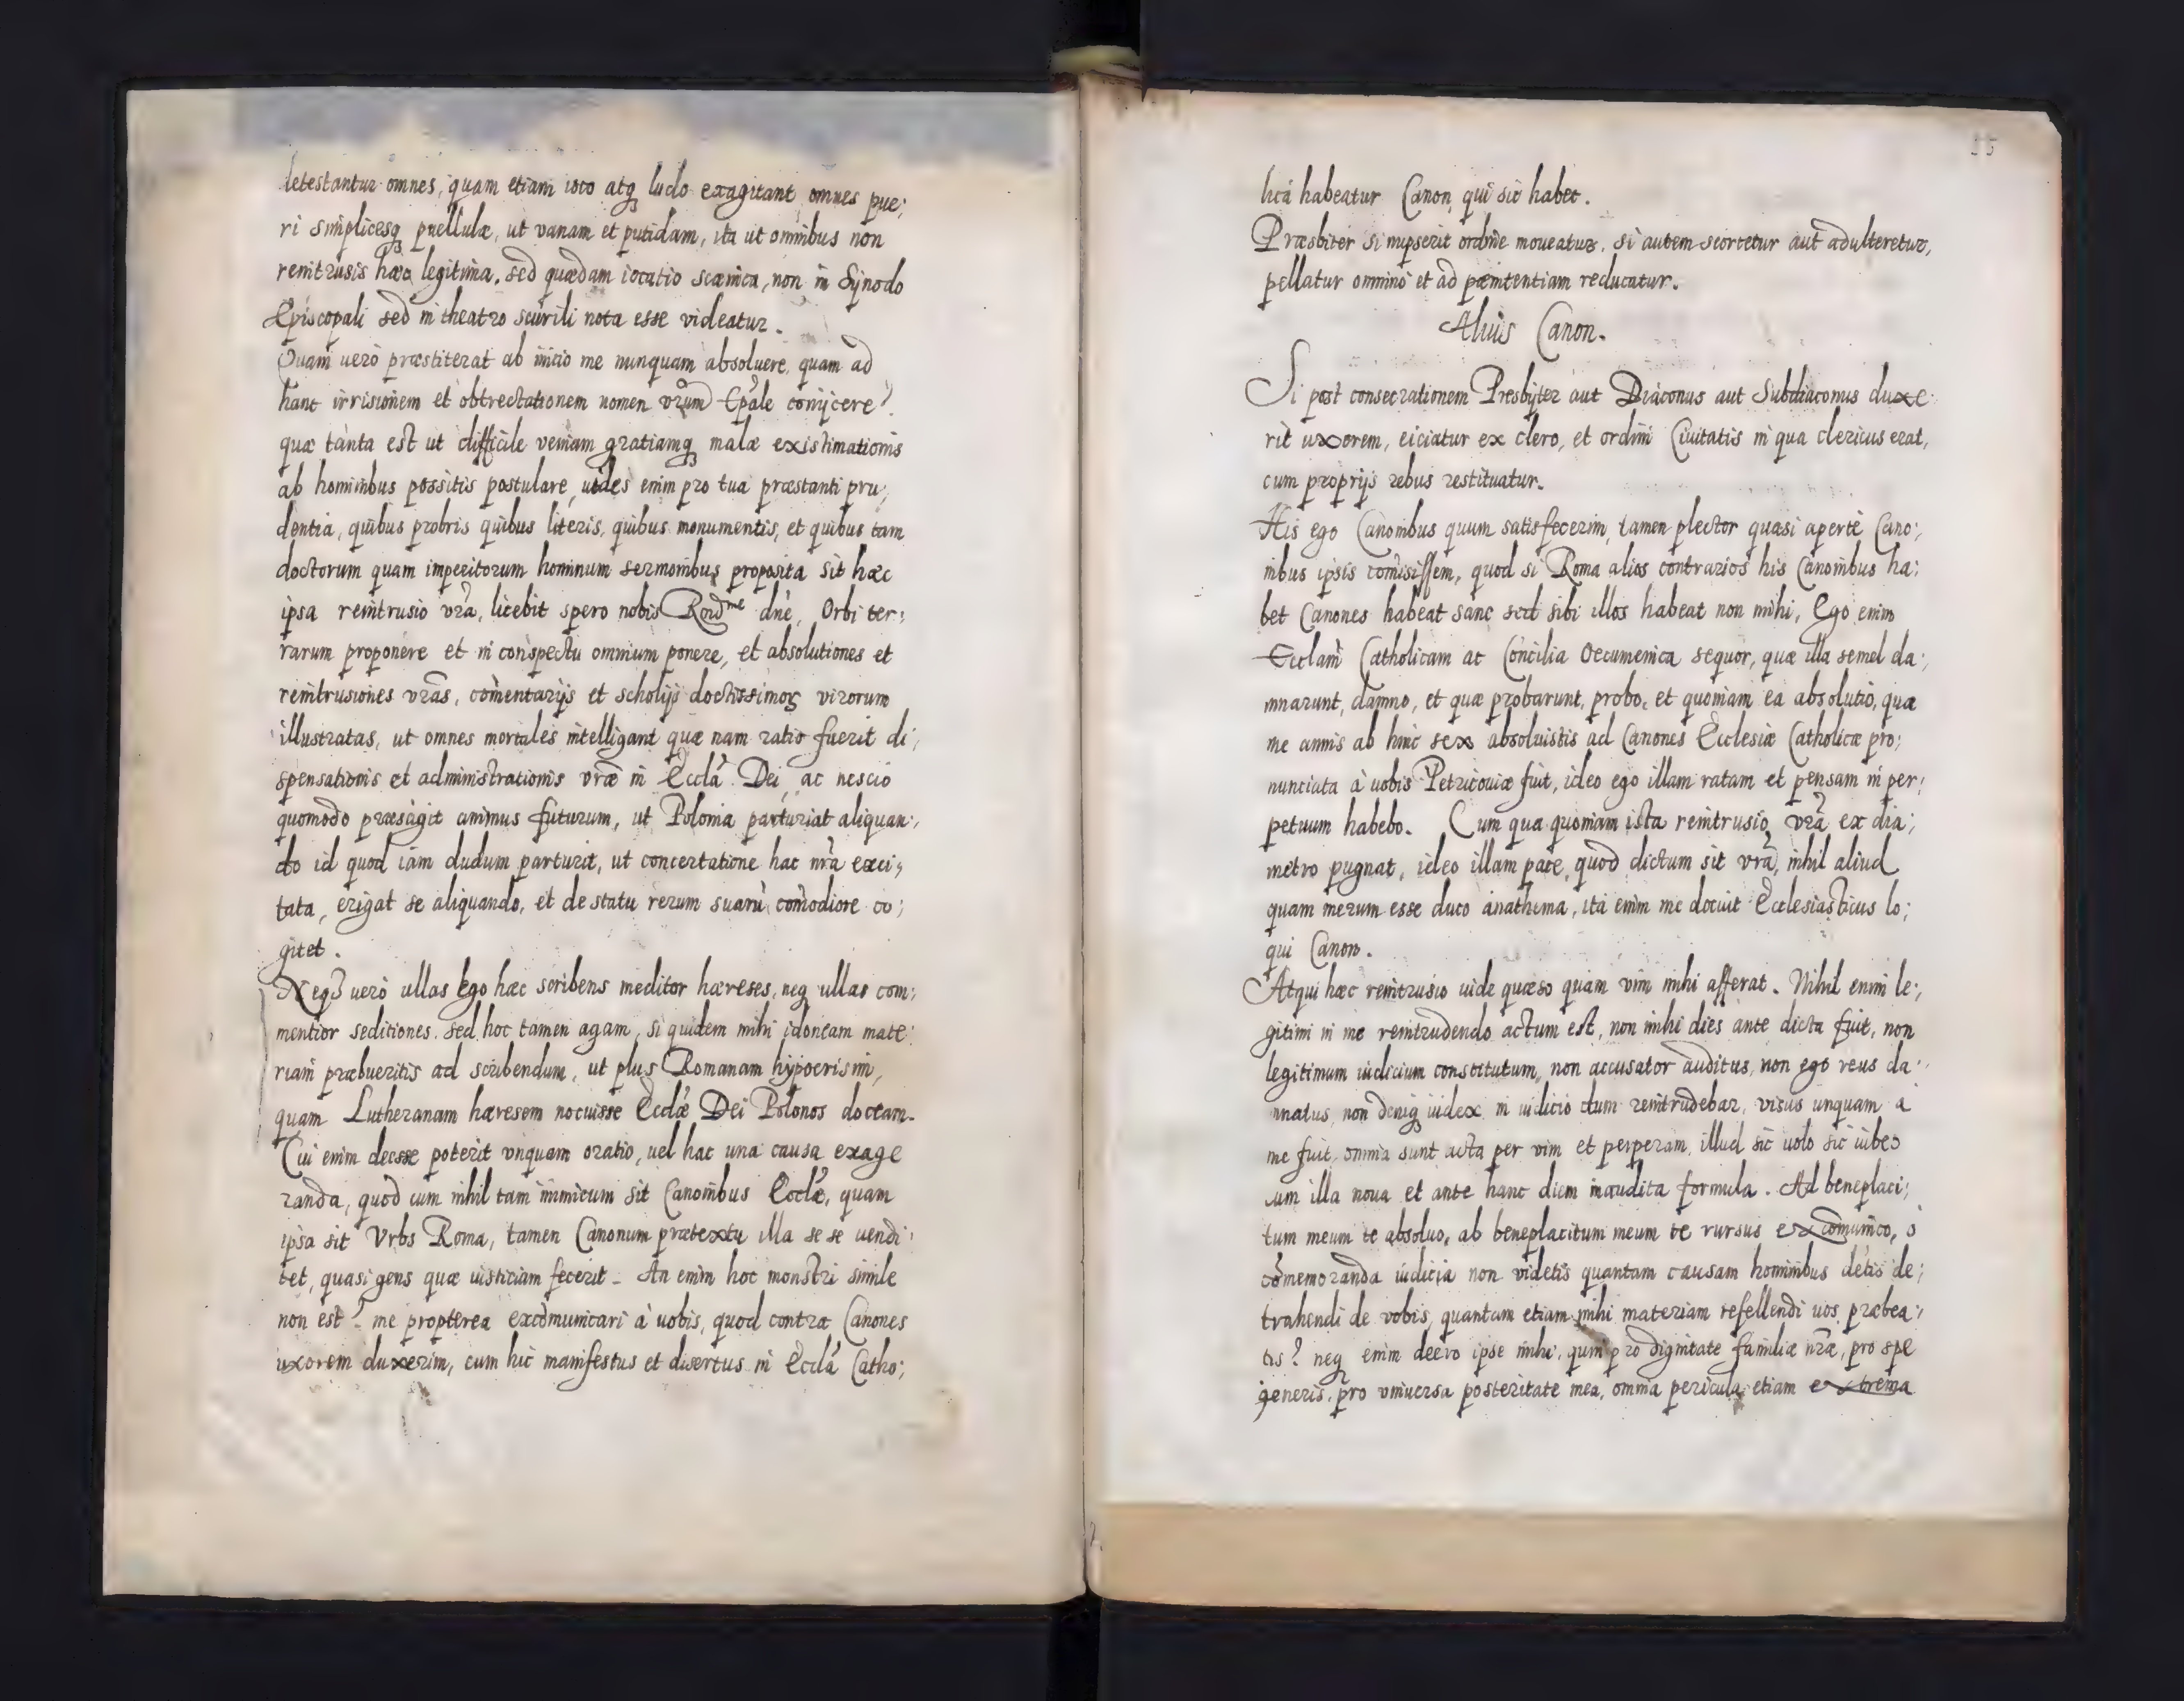 letestantur omnes, quam etiam ioco atq ludo exagitant omnes pue;
ri simplicesq puellulæ, ut vanam et putidam, ita ut omnibus non
reintrusis hæc legitima, sed quædam iocatio scænica, non in Synodo
Episcopali sed in theatro scurili nota esse videatur.
Quam uero præstiterat ab initio me nunquam absoluere, quam ad
hanc irrisionem et obtrectationem nomen vrum Epale conijcere?
quæ tanta est ut difficile veniam gratiamq malæ existimationis
ab hominibus possitis postulare, uides enim pro tua præstanti pru;
dentia, quibus probris quibus literis, quibus monumentis, et quibus tam
doctorum quam imperitorum hominum sermonibus proposita sit hæc
ipsa reintrusio vra, licebit spero nobis Rndme dne, Orbi ter;
rarum proponere et in conspectu omnium ponere, et absolutiones et
reintrusiones vras, comentarijs et scholijs doctissimoꝝ virorum
illustratas, ut omnes mortales intelligant quæ nam ratio fuerit di;
spensationis et administrationis vræ in Eccla Dei, ac nescio
quomodo præsagit animus futurum, ut Polonia parturiat aliquan;
do id quod iam dudum parturit, ut concertatione hac nra exci;
tata, erigat se aliquando, et de statu rerum suarū comodiore co;
gitet.
Neqȝ uero ullas ego hæc scribens meditor hæreses, neq ullas com;
mentior seditiones. sed hoc tamen agam, si quidem mihi idoneam mate;
riam præbueritis ad scribendum, ut plus Romanam hypocrisim,
quam Lutheranam hæresem nocuisse Ecclæ Dei Polonos doceam.
Cui enim deesse poterit vnquam oratio, uel hac una causa exage
randa, quod cum nihil tam inimicum sit Canonibus Ecclæ, quam
ipsa sit Vrbs Roma, tamen Canonum prætextu illa se se uendi;
tet, quasi gens quæ iusticiam fecerit. An enim hoc monstri simile
non est? me propterea excōmunicari à uobis, quod contra Canones
uxorem duxerim, cum hic manifestus et disertus in Eccla Catho;
lica habeatur Canon qui sic habet.
Præsbiter si nupserit ordine moueatur, si autem scortetur aut adulteretur,
pellatur omnino et ad pænitentiam reducatur.
Alius Canon.
Si post consecrationem Presbyter aut Diaconus aut Subdiaconus duxe
rit uxorem, eiciatur ex clero, et ordini Ciuitatis in qua clericus erat,
cum proprijs rebus restituatur.
His ego Canonibus quum satisfecerim, tamen plector quasi aperte Cano;
nibus ipsis comisissem, quod si Roma alios contrarios his Canonibus ha;
bet Canones habeat sane sed sibi illos habeat non mihi, Ego enim
Ecclam Catholicam ac Concilia Oecumenica sequor, quæ illa semel da;
mnarunt, damno, et quæ probarunt, probo, et quoniam ea absolutio, qua
me annis ab hinc sex absoluistis ad Canones Ecclesiæ Catholicæ pro;
nunciata à uobis Petricouiæ fuit, ideo ego illam ratam et pensam in per;
petuum habebo. Cum qua quoniam ista reintrusio vra ex dia;
metro pugnat, ideo illam pace, quod dictum sit vra, nihil aliud
quam merum esse duco anathema, ita enim me docuit Ecclesiasticus lo;
qui Canon.
Atqui hæc reintrusio uide quæso quam vim mihi afferat. Nihil enim le;
gitimi in me reintrudendo actum est, non mihi dies ante dicta fuit, non
legitimum iudicium constitutum, non accusator auditus, non ego reus da;
mnatus, non deniq iudex in iudicio dum reintrudebar, visus unquam a
me fuit, omnia sunt acta per vim et perperam, illud sic uolo sic iubeo
cum illa noua et ante hanc diem inaudita formula. Ad beneplaci;
tum meum te absoluo, ab beneplacitum meum te rursus excomunico, ô
cōmemoranda iudicia non videtis quantam causam hominibus detis de;
trahendi de vobis, quantam etiam mihi materiam refellendi uos præbea;
tis? neq enim deero ipse mihi, quin pro dignitate familiæ nræ, pro spe
generis, pro vniuersa posteritate mea, omnia pericula etiam extrema